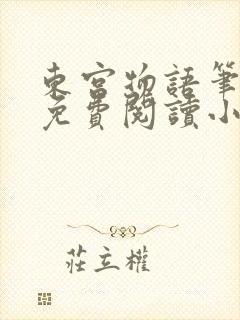 東宮物語筆
免費閱讀小
莊立權